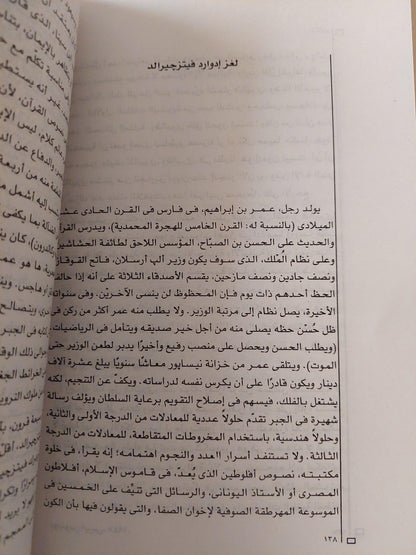 لغز إدوارد فيتزجيرالد
يولد رجل، عمر بن إبراهيم، فى فارس فى القرن الحادى عشر
الميلادى (بالنسبة له: القرن الخامس للهجرة المحمدية)، ويدرس القرآن
والحديث على الحسن بن الصبّاح، المؤسس اللاحق لطائفة الحشاشين
وعلى نظام المُلك، الذى سوف يكون وزير ألب أرسلان، فاتح القوقاز.
ونصف جادين ونصف مازحين، يقسم الأصدقاء الثلاثة على أنه إذا حالف
الحظ أحدهم ذات يوم فإن المحظوظ لن ينسى الآخريْن. وفى سنواته
الأخيرة، يصل نظام إلى مرتبة الوزير. ولا يطلب منه عمر أكثر من ركن فى
ظل حُسْن حظه يصلى منه من أجل خير صديقه ويتأمل فى الرياضيات.
(ويطلب الحسن ويحصل على منصب رفيع وأخيرًا يدبر لطعن الوزير حتى
الموت). ويتلقى عمر من خزانة نيسابور معاشًا سنويًا يبلغ عشرة آلاف
دينار ويكون قادرًا على أن يكرس نفسه لدراساته. ويكف عن التنجيم، لكنه
يشتغل بالفلك، فيسهم فى إصلاح التقويم برعاية السلطان ويؤلف رسالة
شهيرة فى الجبر تقدّم حلولاً عددية للمعادلات من الدرجة الأولى والثانية،
وحلولاً هندسية، باستخدام المخروطات المتقاطعة، للمعادلات من الدرجة
الثالثة. ولا تستنفد أسرار العدد والنجوم اهتمامه؛ إنه يقرأ، فى خلوة
مكتبته، نصوص أفلوطين الذى يُعدّ، فى قاموس الإسلام، أفلاطون
المصرى أو الأستاذ اليونانى، والرسائل التى تنيّف على الخمسين فى
الموسوعة المهرطقة الصوفية لإخوان الصفا، والتى يقولون فيها بأن الكون
١٢٨